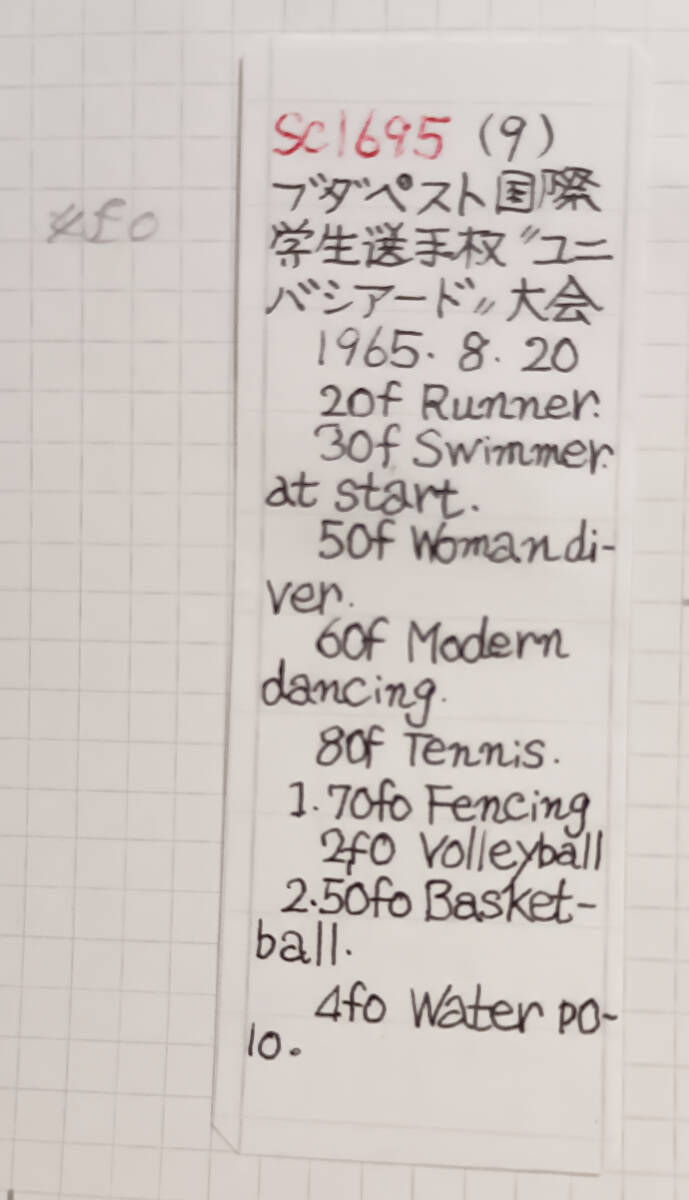 SC1695 (9)
ブダペスト国際
学生選手权〝ユニ
バシアード〟大会
1965. 8. 20
20f Runner.
30f Swimmer
at start.
50f Woman di-
ver.
60f Modern
dancing.
80f Tennis.
1.70fo Fencing
2fo Volleyball
2.50fo Basket-
ball.
4fo Water po-
lo.
4fo